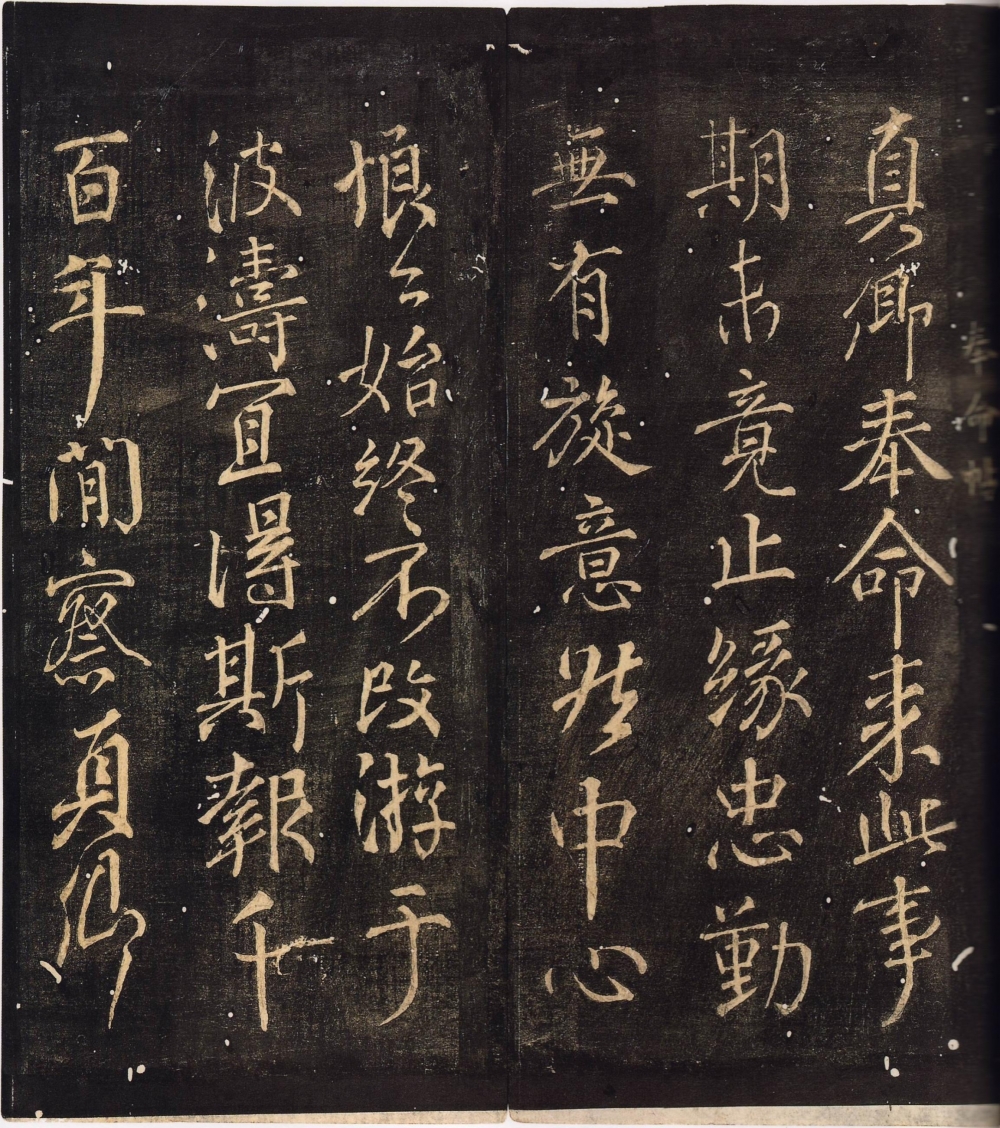 奉命帖
真卿奉命来此事
期未竟止緣忠勤
無有旋意然中心
恨々始終不改游于
波濤宜得斯報千
百年間察真卿